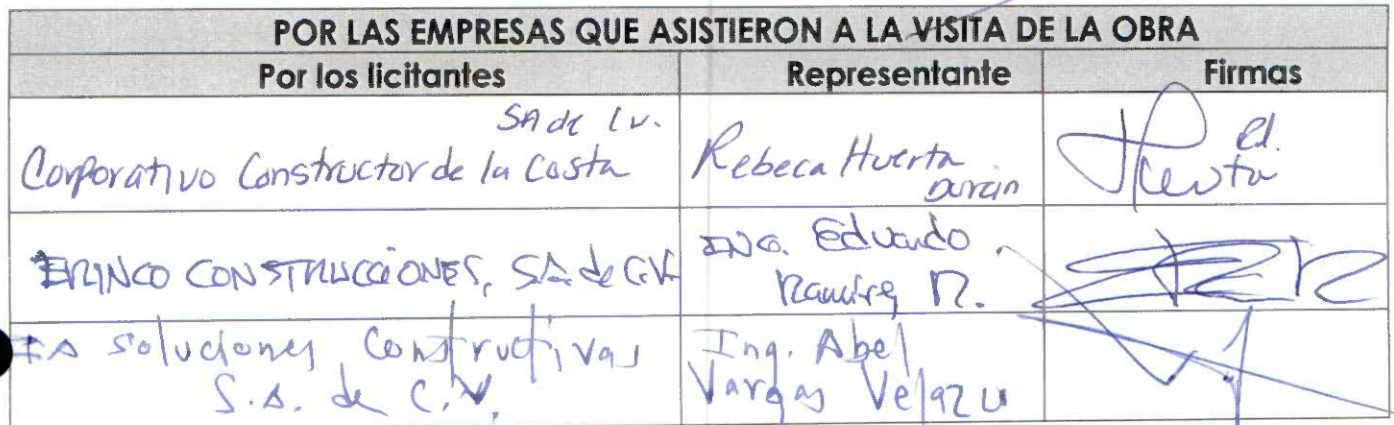 POR LAS EMPRESAS QUE ASISTIERON A LA VISITA DE LA OBRA
Por los licitantes Representante Firmas
SA de C.V.
Corporativo Constructor de la Costa Rebeca Huerta
Durán
Rd.
Huerta
ERINCO CONSTRUCCIONES, S.A. de C.V. ING. Eduardo
Ramírez R.
IA soluciones Constructivas Ing. Abel
S.A. de C.V. Vargas Velazu